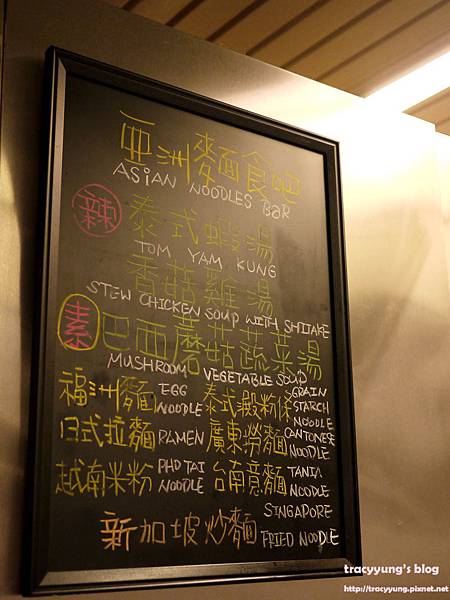 亞洲麵食吧
ASIAN NOODLES BAR
辣 泰式蝦湯
TOM YAM KUNG
香菇雞湯
STEW CHICKEN SOUP WITH SHITAKE
素 巴西蘑菇蔬菜湯
MUSHROOM VEGETABLE SOUP
福洲麵 EGG NOODLE 泰式澱粉條 GRAIN STARCH NOODLE
日式拉麵 RAMEN 廣東撈麵 CANTONESE NOODLE
越南米粉 PHD TAI NOODLE 台南意麵 TANIA NOODLE
新加坡炒麵 SINGAPORE FRIED NOODLE
tracyyung's blog
http://tracyyung.pixnet.net